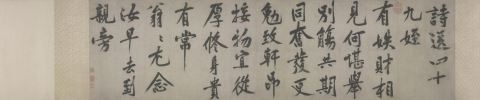 詩送四十
九姪
有姪財相
見何堪舉
別觴共期
同奮發更
勉致軒昂
接物宜從
厚脩身貴
有常
翁翁尤念
汝早去到
親旁